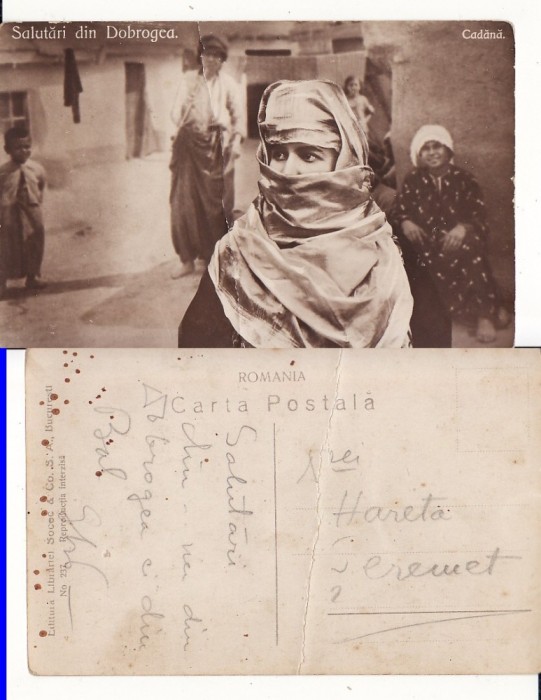 Salutări din Dobrogea.
Cadână.
ROMANIA
Carta Postală
Editura Librăriei Socec & Co. S. A., București
No 237 Reproducția Interzisă
Salutări
din - nu din
Dobrogea ci din
Bal
Hareta
Seremet
2